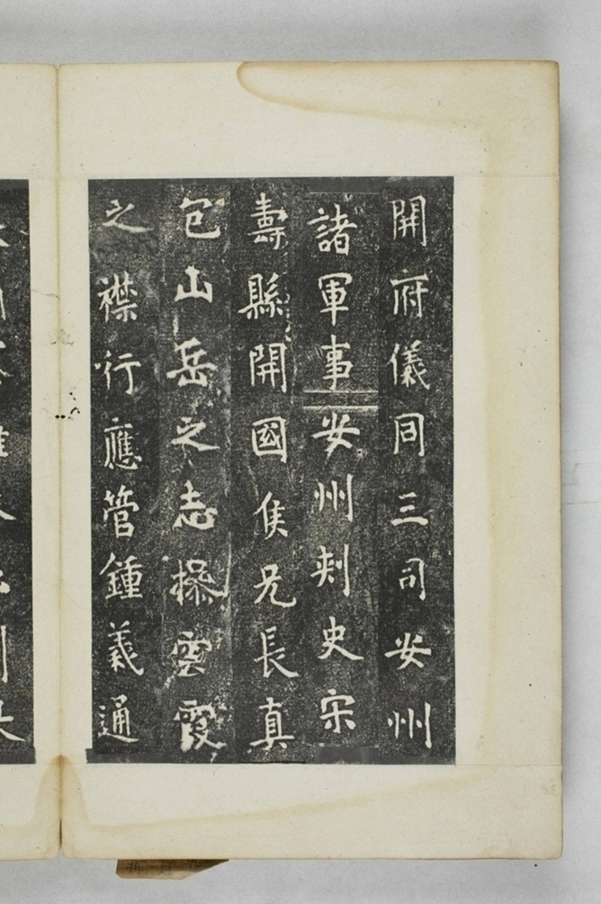 開府儀同三司安州
諸軍事安州刺史宋
壽縣開國侯兄長真
包山岳之志操雲霞
之襟行應管鍾義通